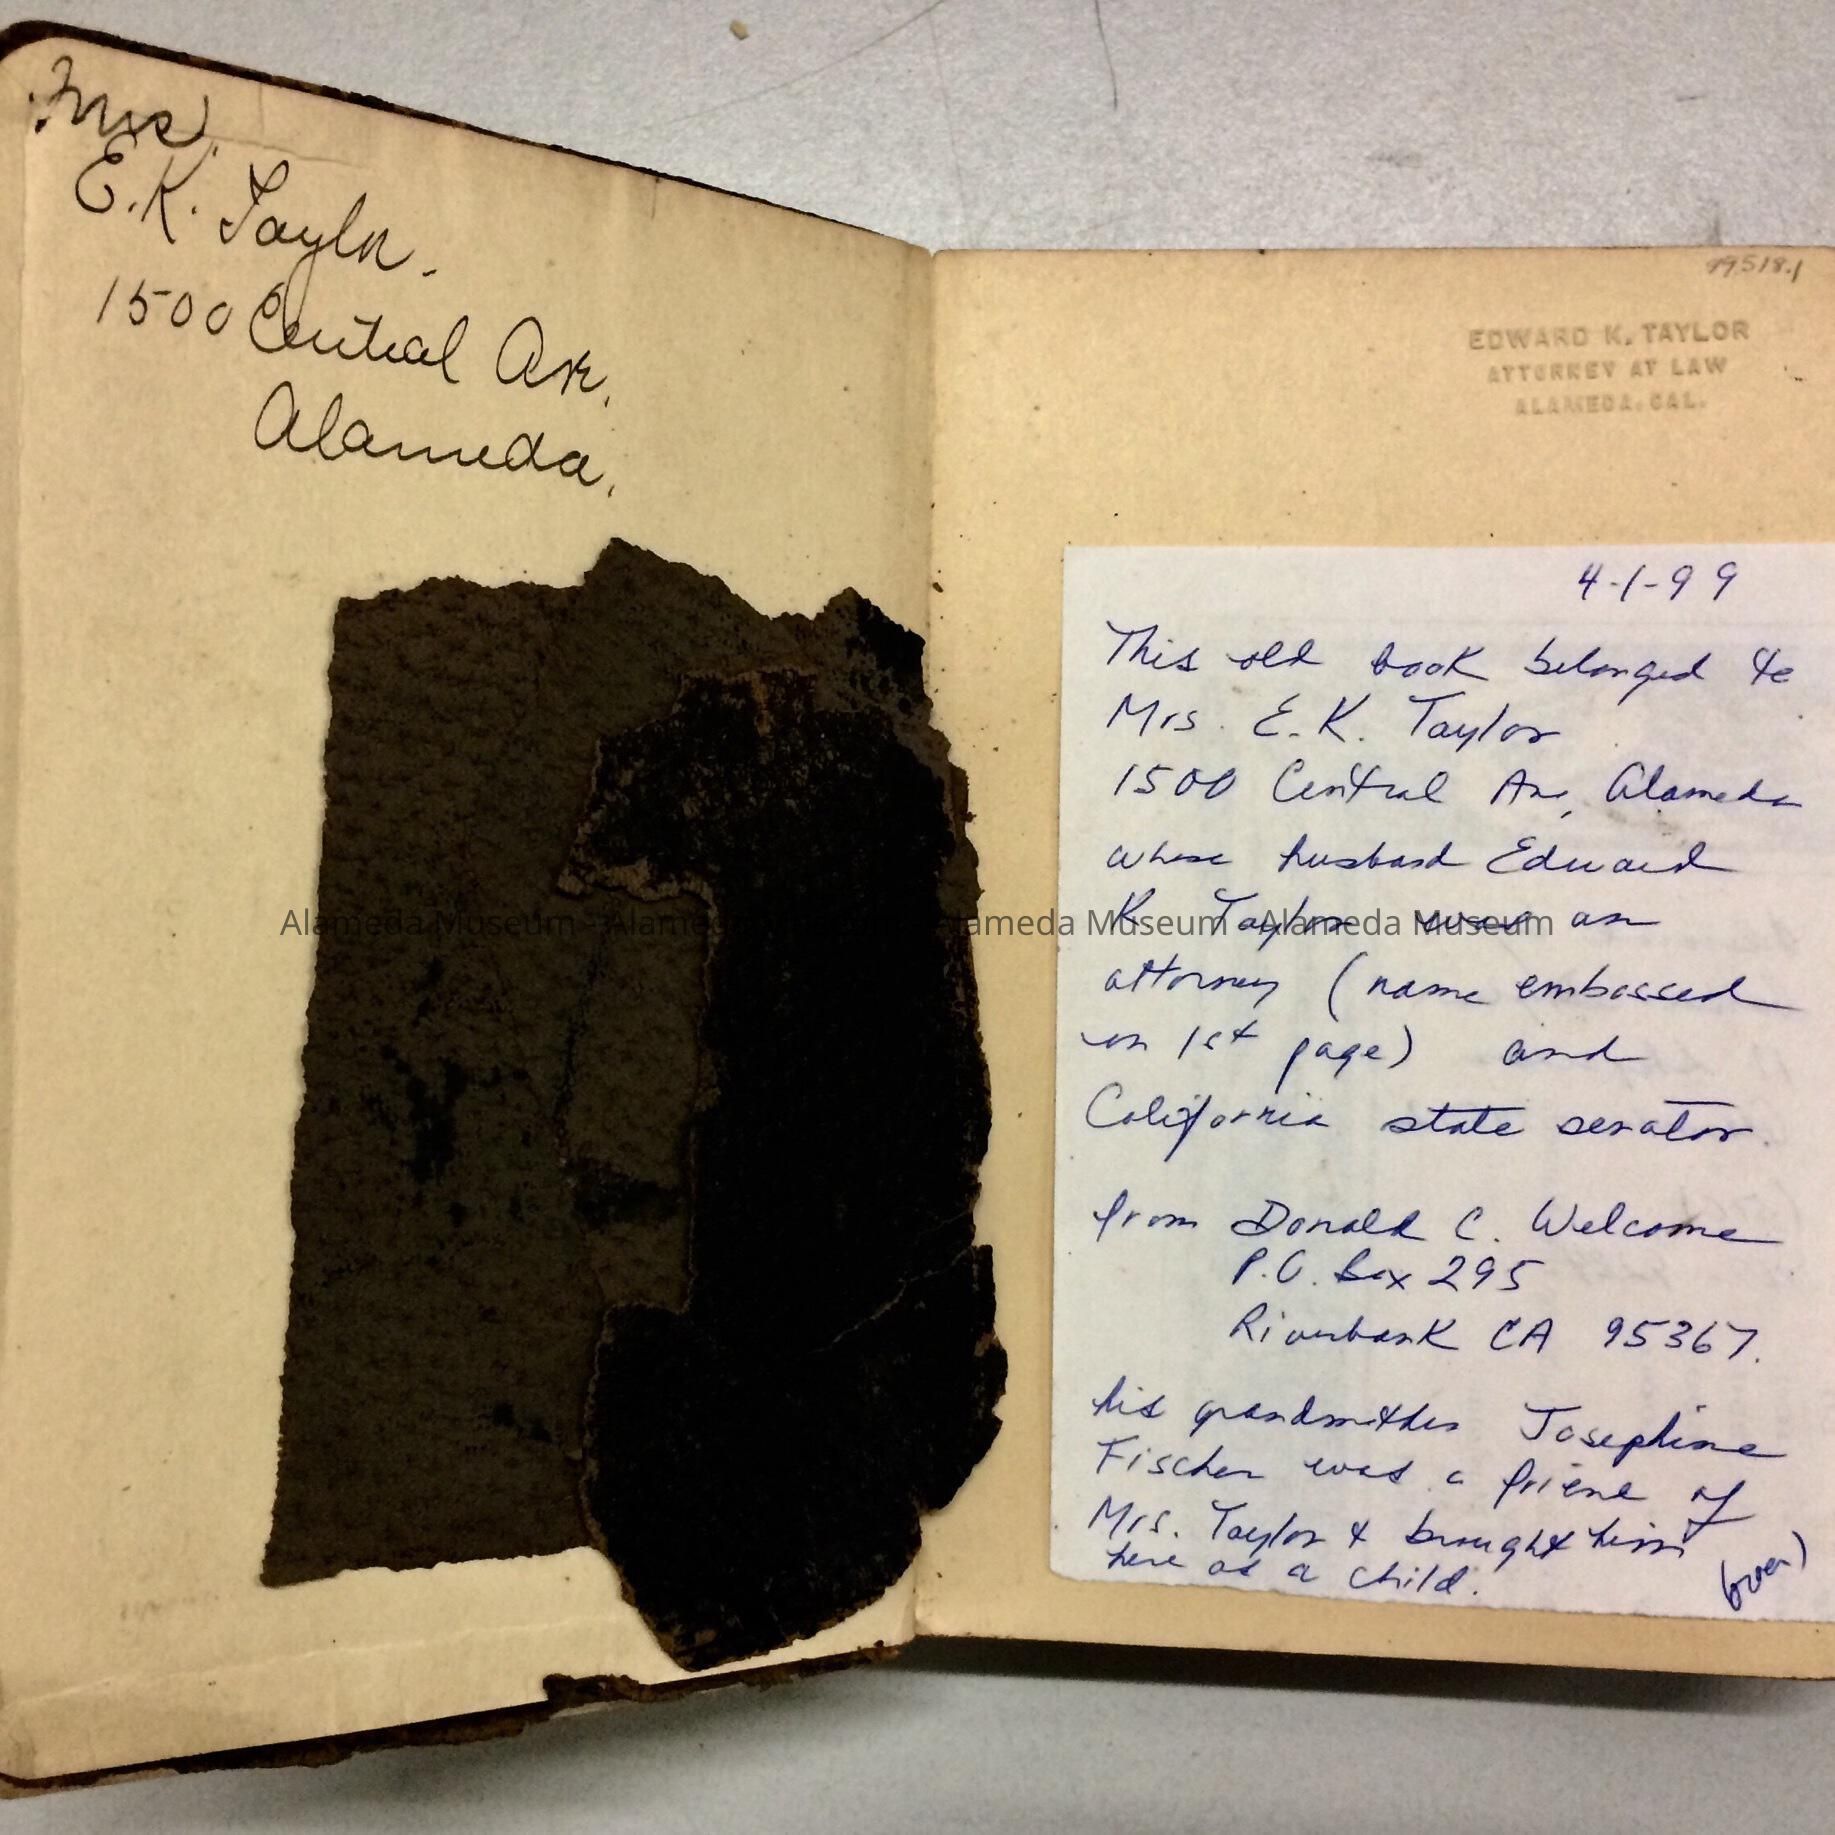 Mrs.
E.K. Taylor.
1500 Central Ave.
Alameda.
99.518.1
EDWARD K. TAYLOR
ATTORNEY AT LAW
ALAMEDA, CAL.
4-1-99
This old book belonged to
Mrs. E.K. Taylor
1500 Central Av, Alameda
whose husband Edward
K Taylor was an
attorney (name embossed
on 1st page) and
California state senator.
from Donald C. Welcome
P.O. Box 295
Riverbank CA 95367.
his grandmother Josephine
Fischer was a friend of
Mrs. Taylor & brought him
here as a child.
(over)
Alameda Museum - Alameda Museum - Alameda Museum - Alameda Museum